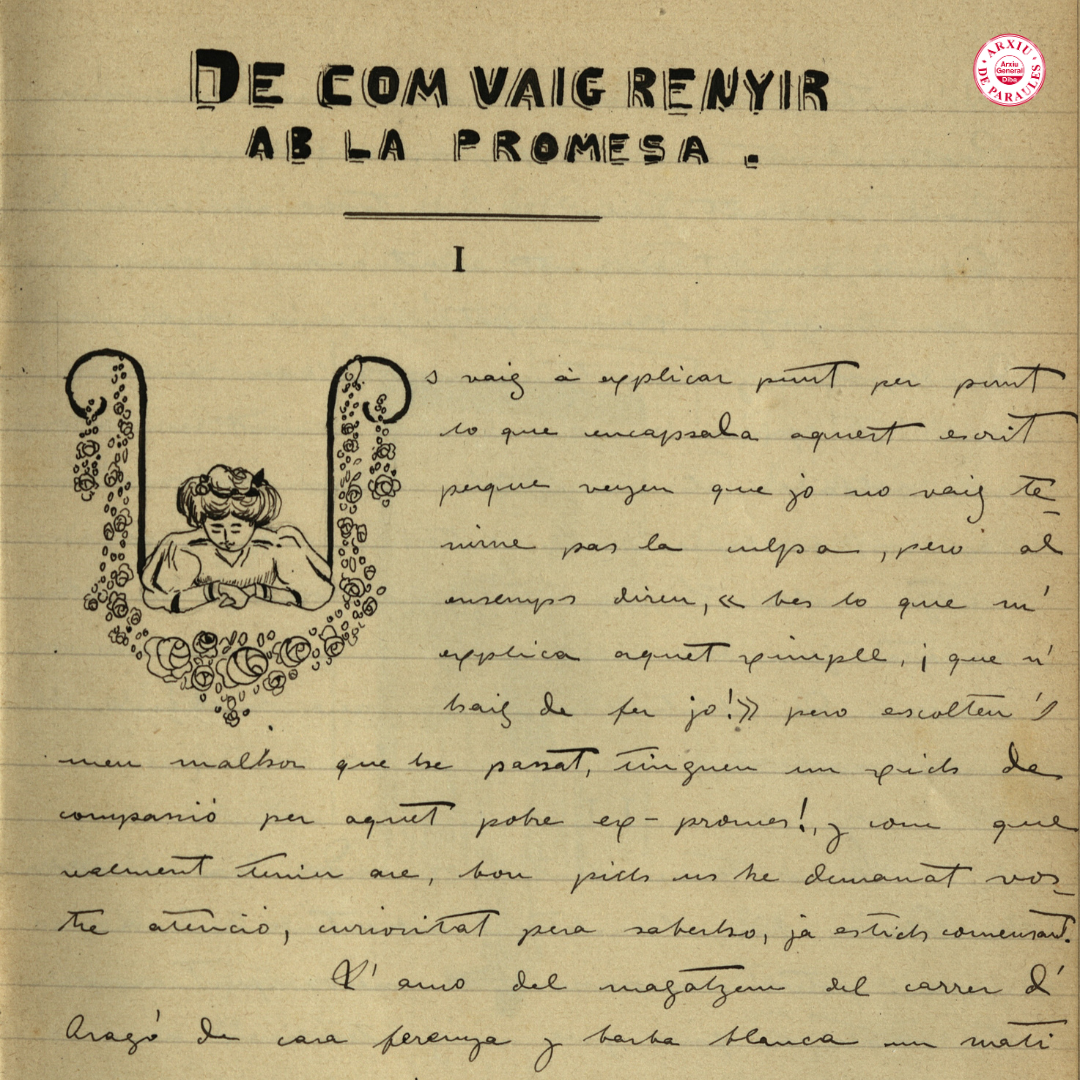 DE COM VAIG RENYIR
AB LA PROMESA.
ARXIU DE PARAULES
Arxiu
General
Diba
I
Us vaig à explicar punt per punt
lo que encapsala aquest escrit
perque vegen que jo no vaig te-
nirne pas la culpa, pero al
ensemps diren, « bes lo que m'
explica aquet ximple, ¡ que n'
haig de fer jo!» pero escolten 'l
meu malhor que he passat, tinguen un xich de
companió per aquet pobre ex-promes!, y com que
realment teniu are, bon pich us he demanat vos-
tre atenció, curiositat pera saberho, ja estich comensant.
L' amo del magatzem del carrer d'
Aragó de cara ferenya y barba blanca un mati